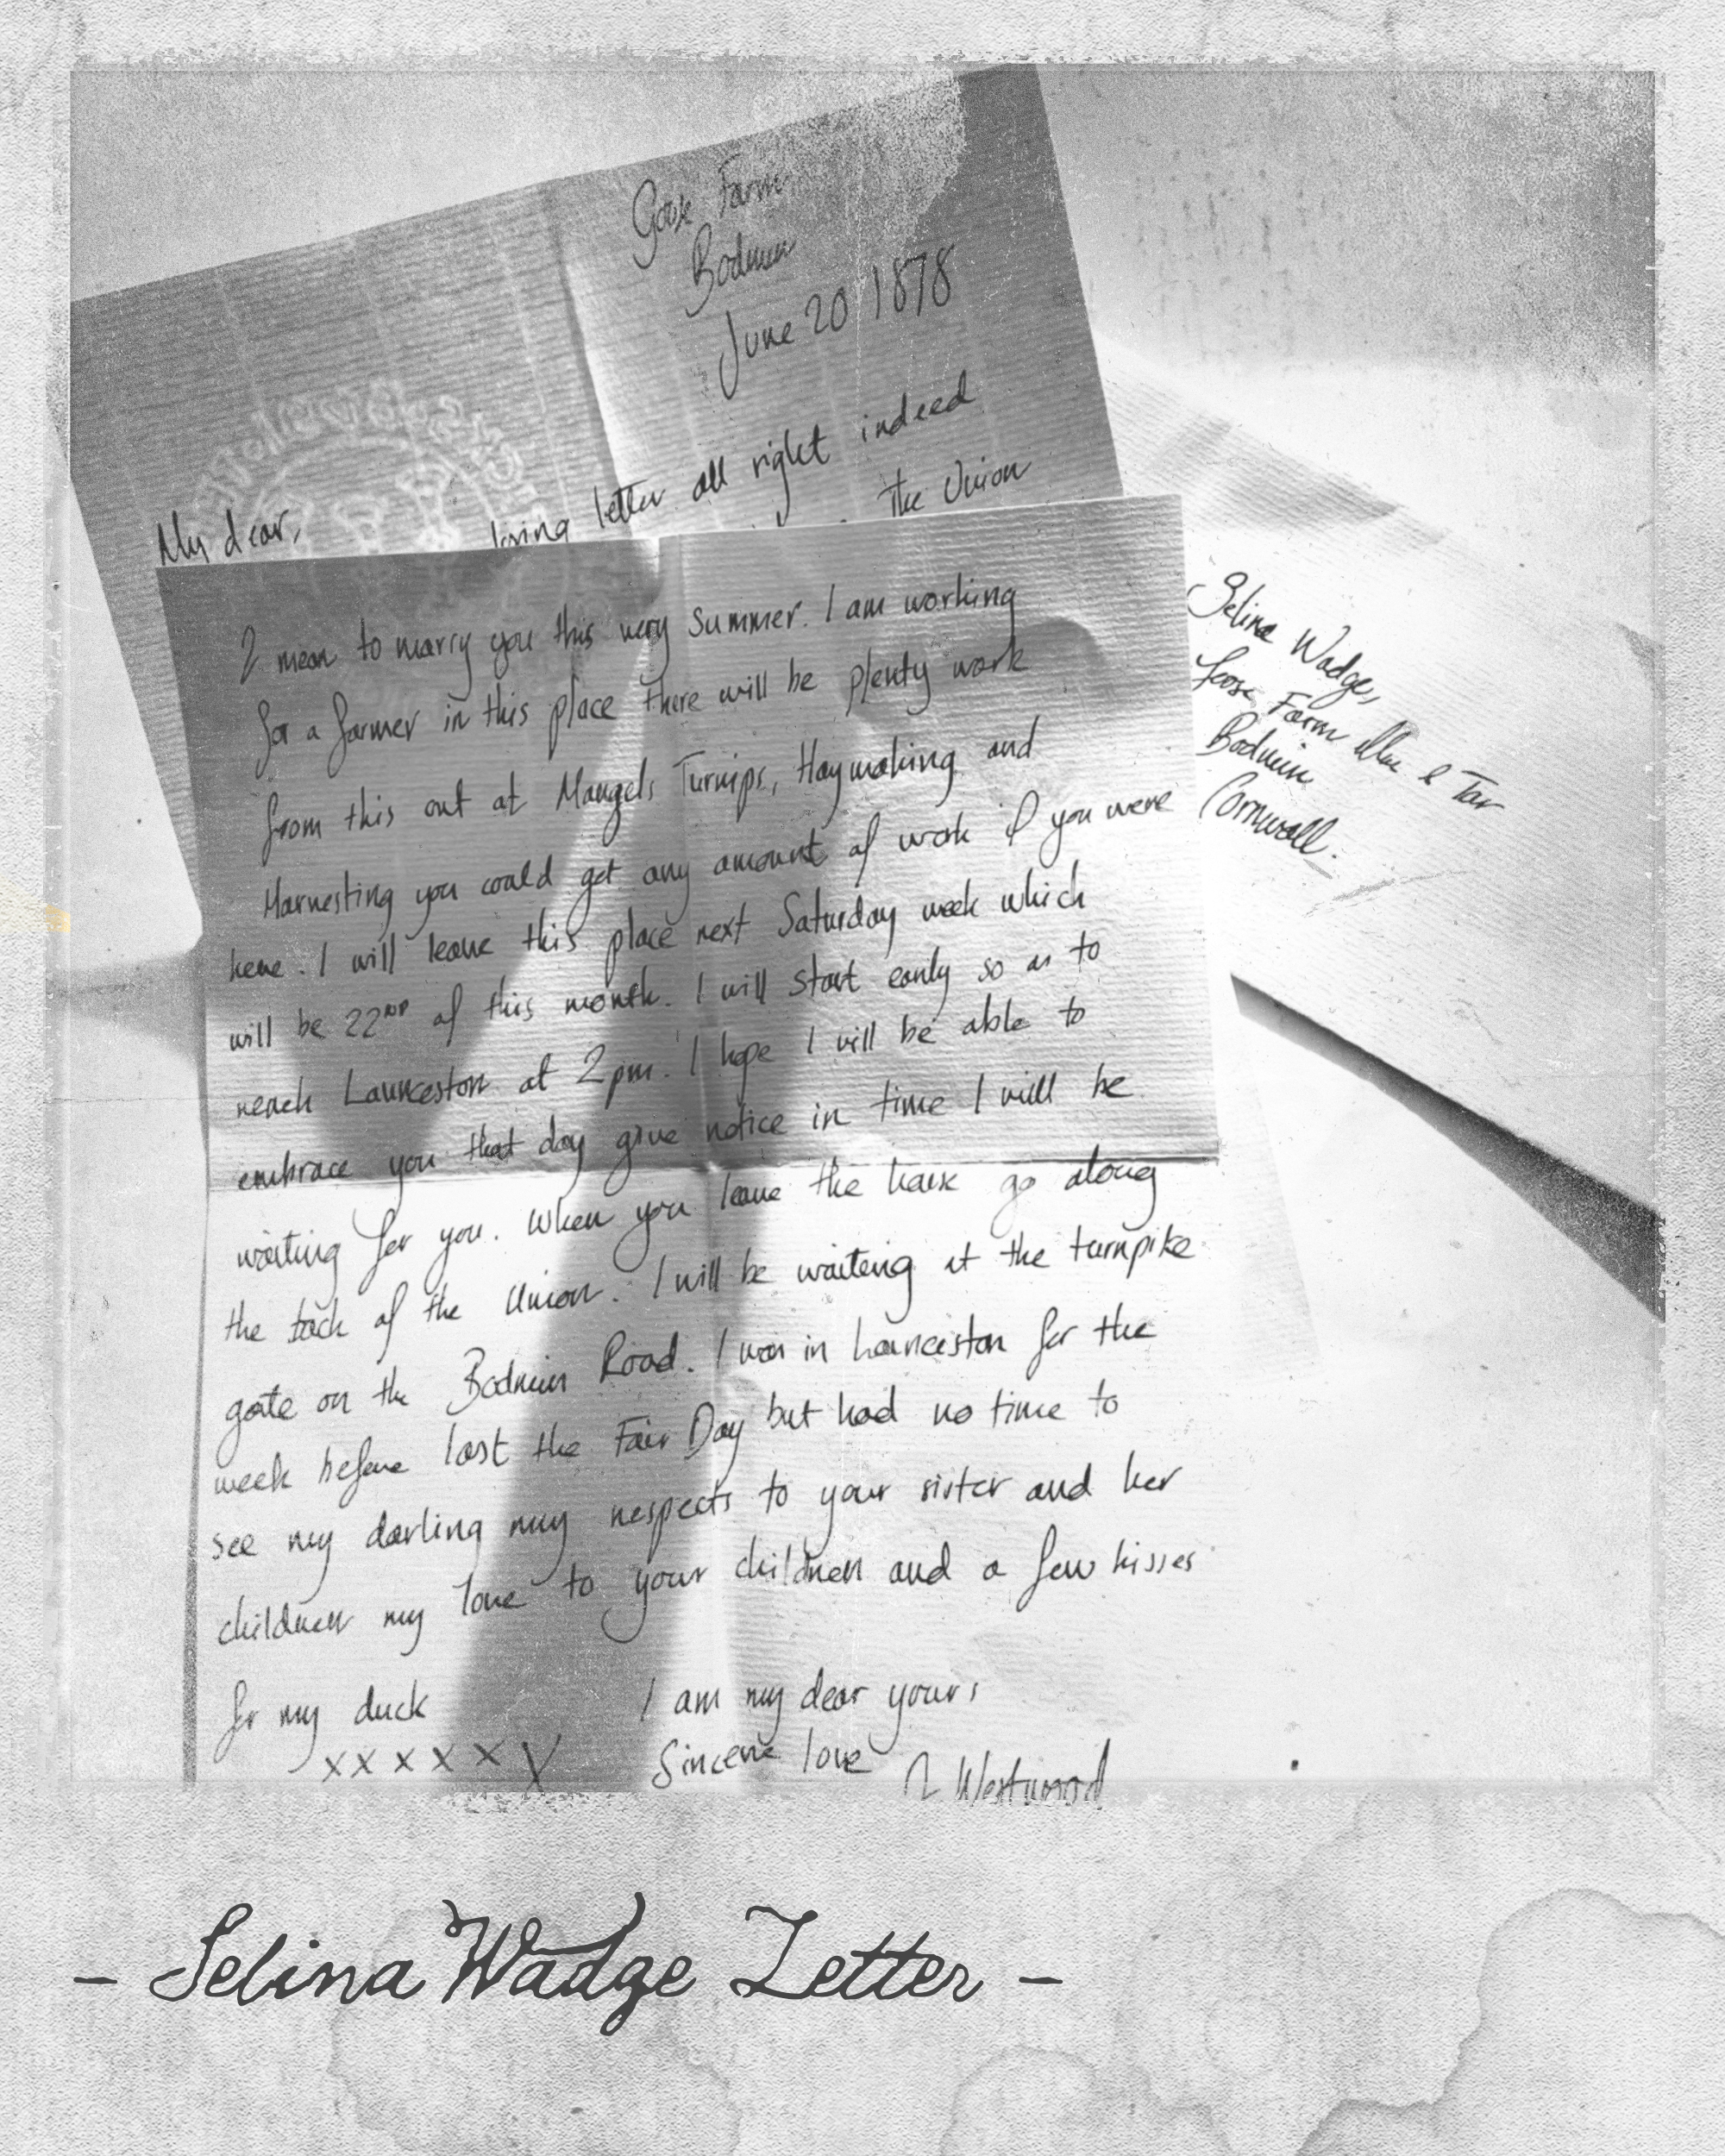 Goose Farm
Bodmin
June 20 1878
My dear,
loving letter all right indeed
the Union
I mean to marry you this very Summer. I am working
for a farmer in this place there will be plenty work
from this out at Mangels Turnips, Haymaking and
Harvesting you could get any amount of work if you were
here. I will leave this place next Saturday week which
will be 22ND of this month. I will start early so as to
reach Launceston at 2pm. I hope I will be able to
embrace you that day give notice in time I will be
waiting for you. When you leave the house go along
the back of the Union. I will be waiteing at the turnpike
gate on the Bodmin Road. I was in Launceston for the
week before last the Fair Day but had no time to
see my darling my respects to your sister and her
children my love to your children and a few kisses
for my duck
I am my dear yours
xxxxxx
Sincere love
J Westwood
Selina Wadge,
Goose Farm
Bodmin
Cornwall.
- Selina Wadge Letter -